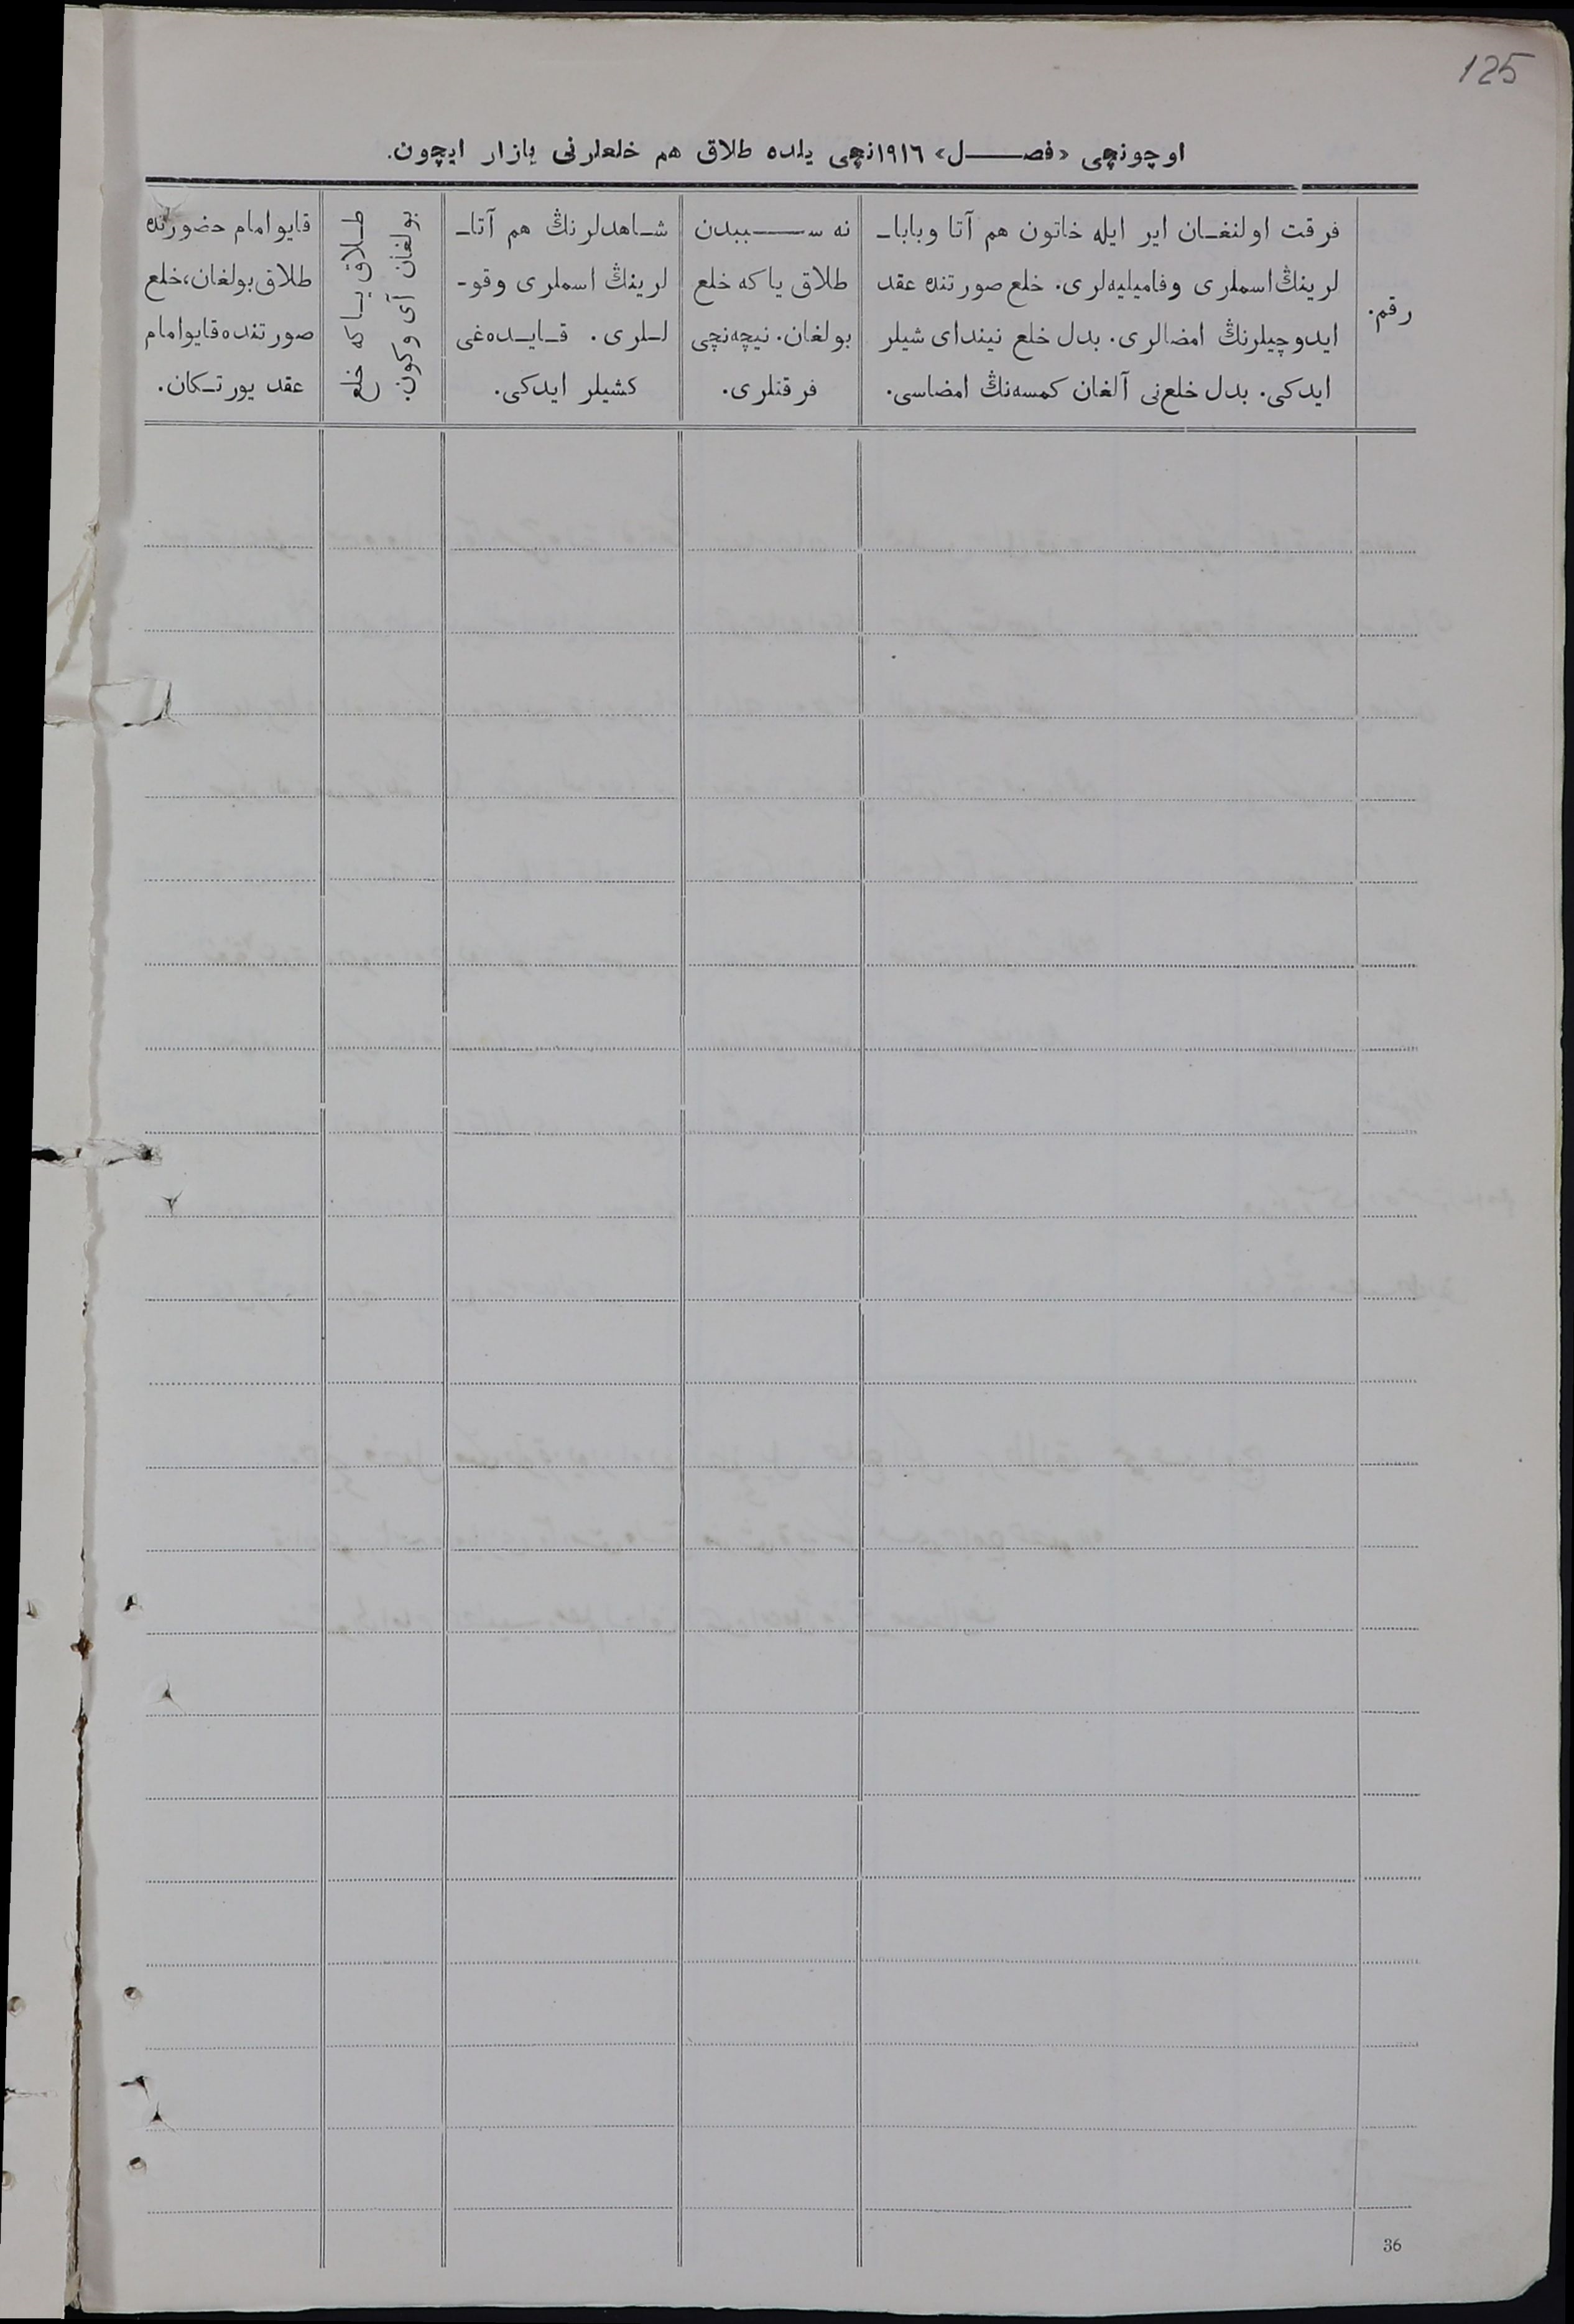 125
اوچونچی «فصل» ١٩١٦نچی یلده طلاق هم خلعلرنی یازار ایچون.
رقم.
فرقت اولنغان ایر ایله خاتون هم آتا وبابا-
لرینڭ اسملری وفامیلیه‌لری. خلع صورتنده عقد
ایدوچیلرنڭ امضالری. بدل خلع نیندای شیلر
ایدکی. بدل خلع‌نی آلغان کمسه‌نڭ امضاسی.
نه سببدن
طلاق یا که خلع
بولغان. نیچه‌نچی
فرقتلری.
شاهدلرنڭ هم آتا-
لرینڭ اسملری وقو-
لـلری. قایده‌غی
کشیلر ایدکی.
طلاق یا که خلع
بولغان آی وکون.
قایو امام حضورنده
طلاق بولغان، خلع
صورتنده قایو امام
عقد یورتکان.
36